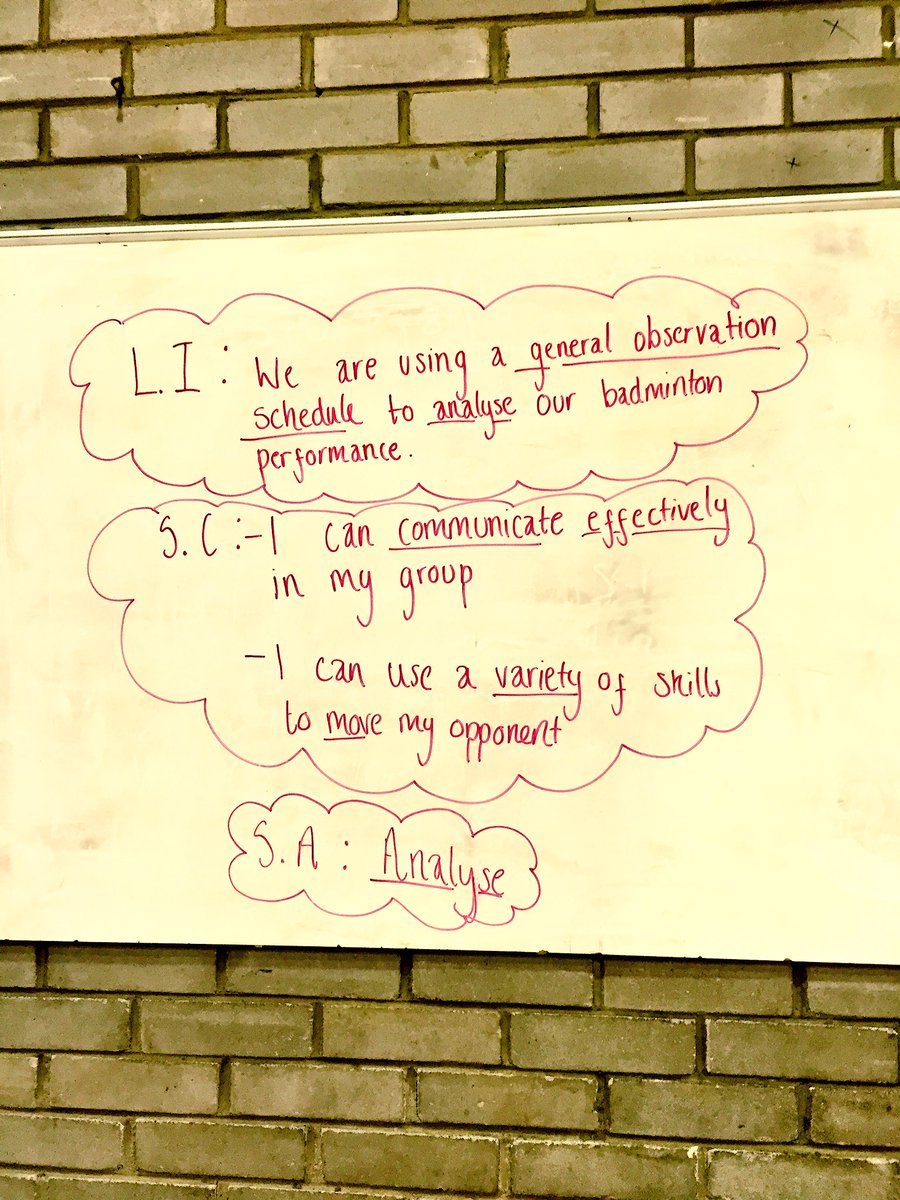 L.I : We are using a general observation
schedule to analyse our badminton
performance.
S.C :- I can communicate effectively
in my group
- I can use a variety of skills
to move my opponent
S.A : Analyse